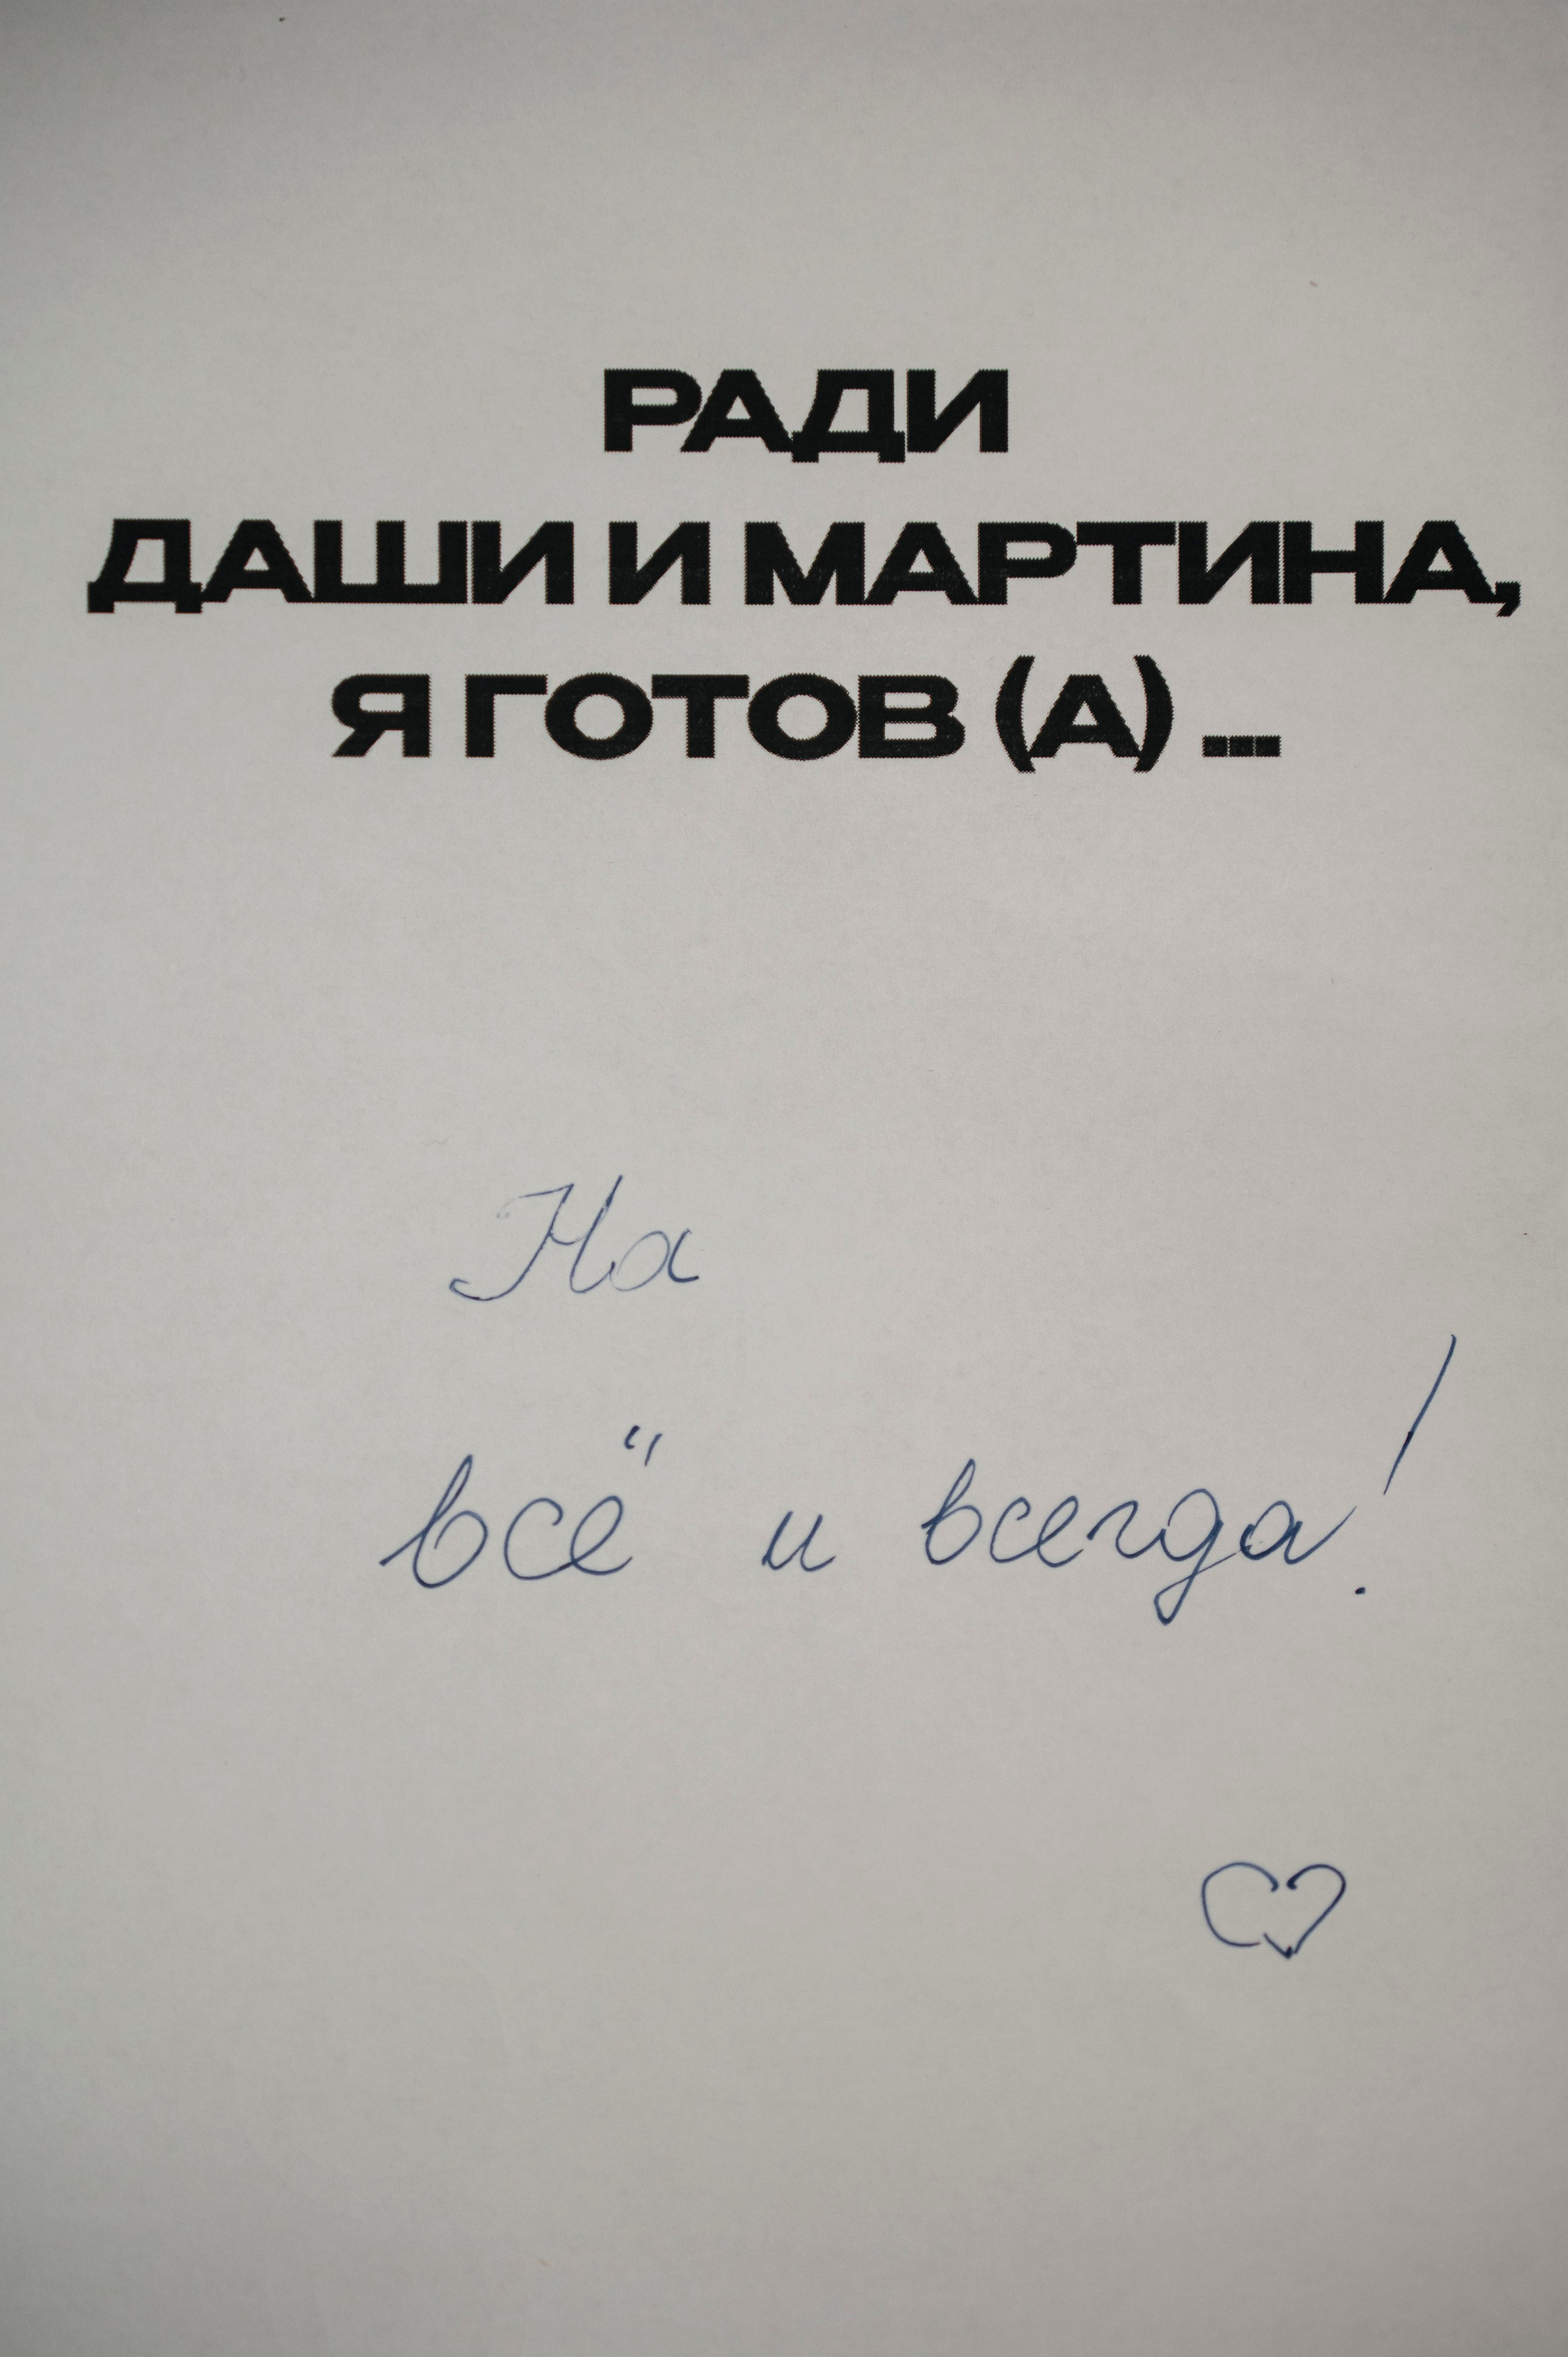 РАДИ
ДАШИ И МАРТИНА,
Я ГОТОВ (А) ...
На
всё и всегда!